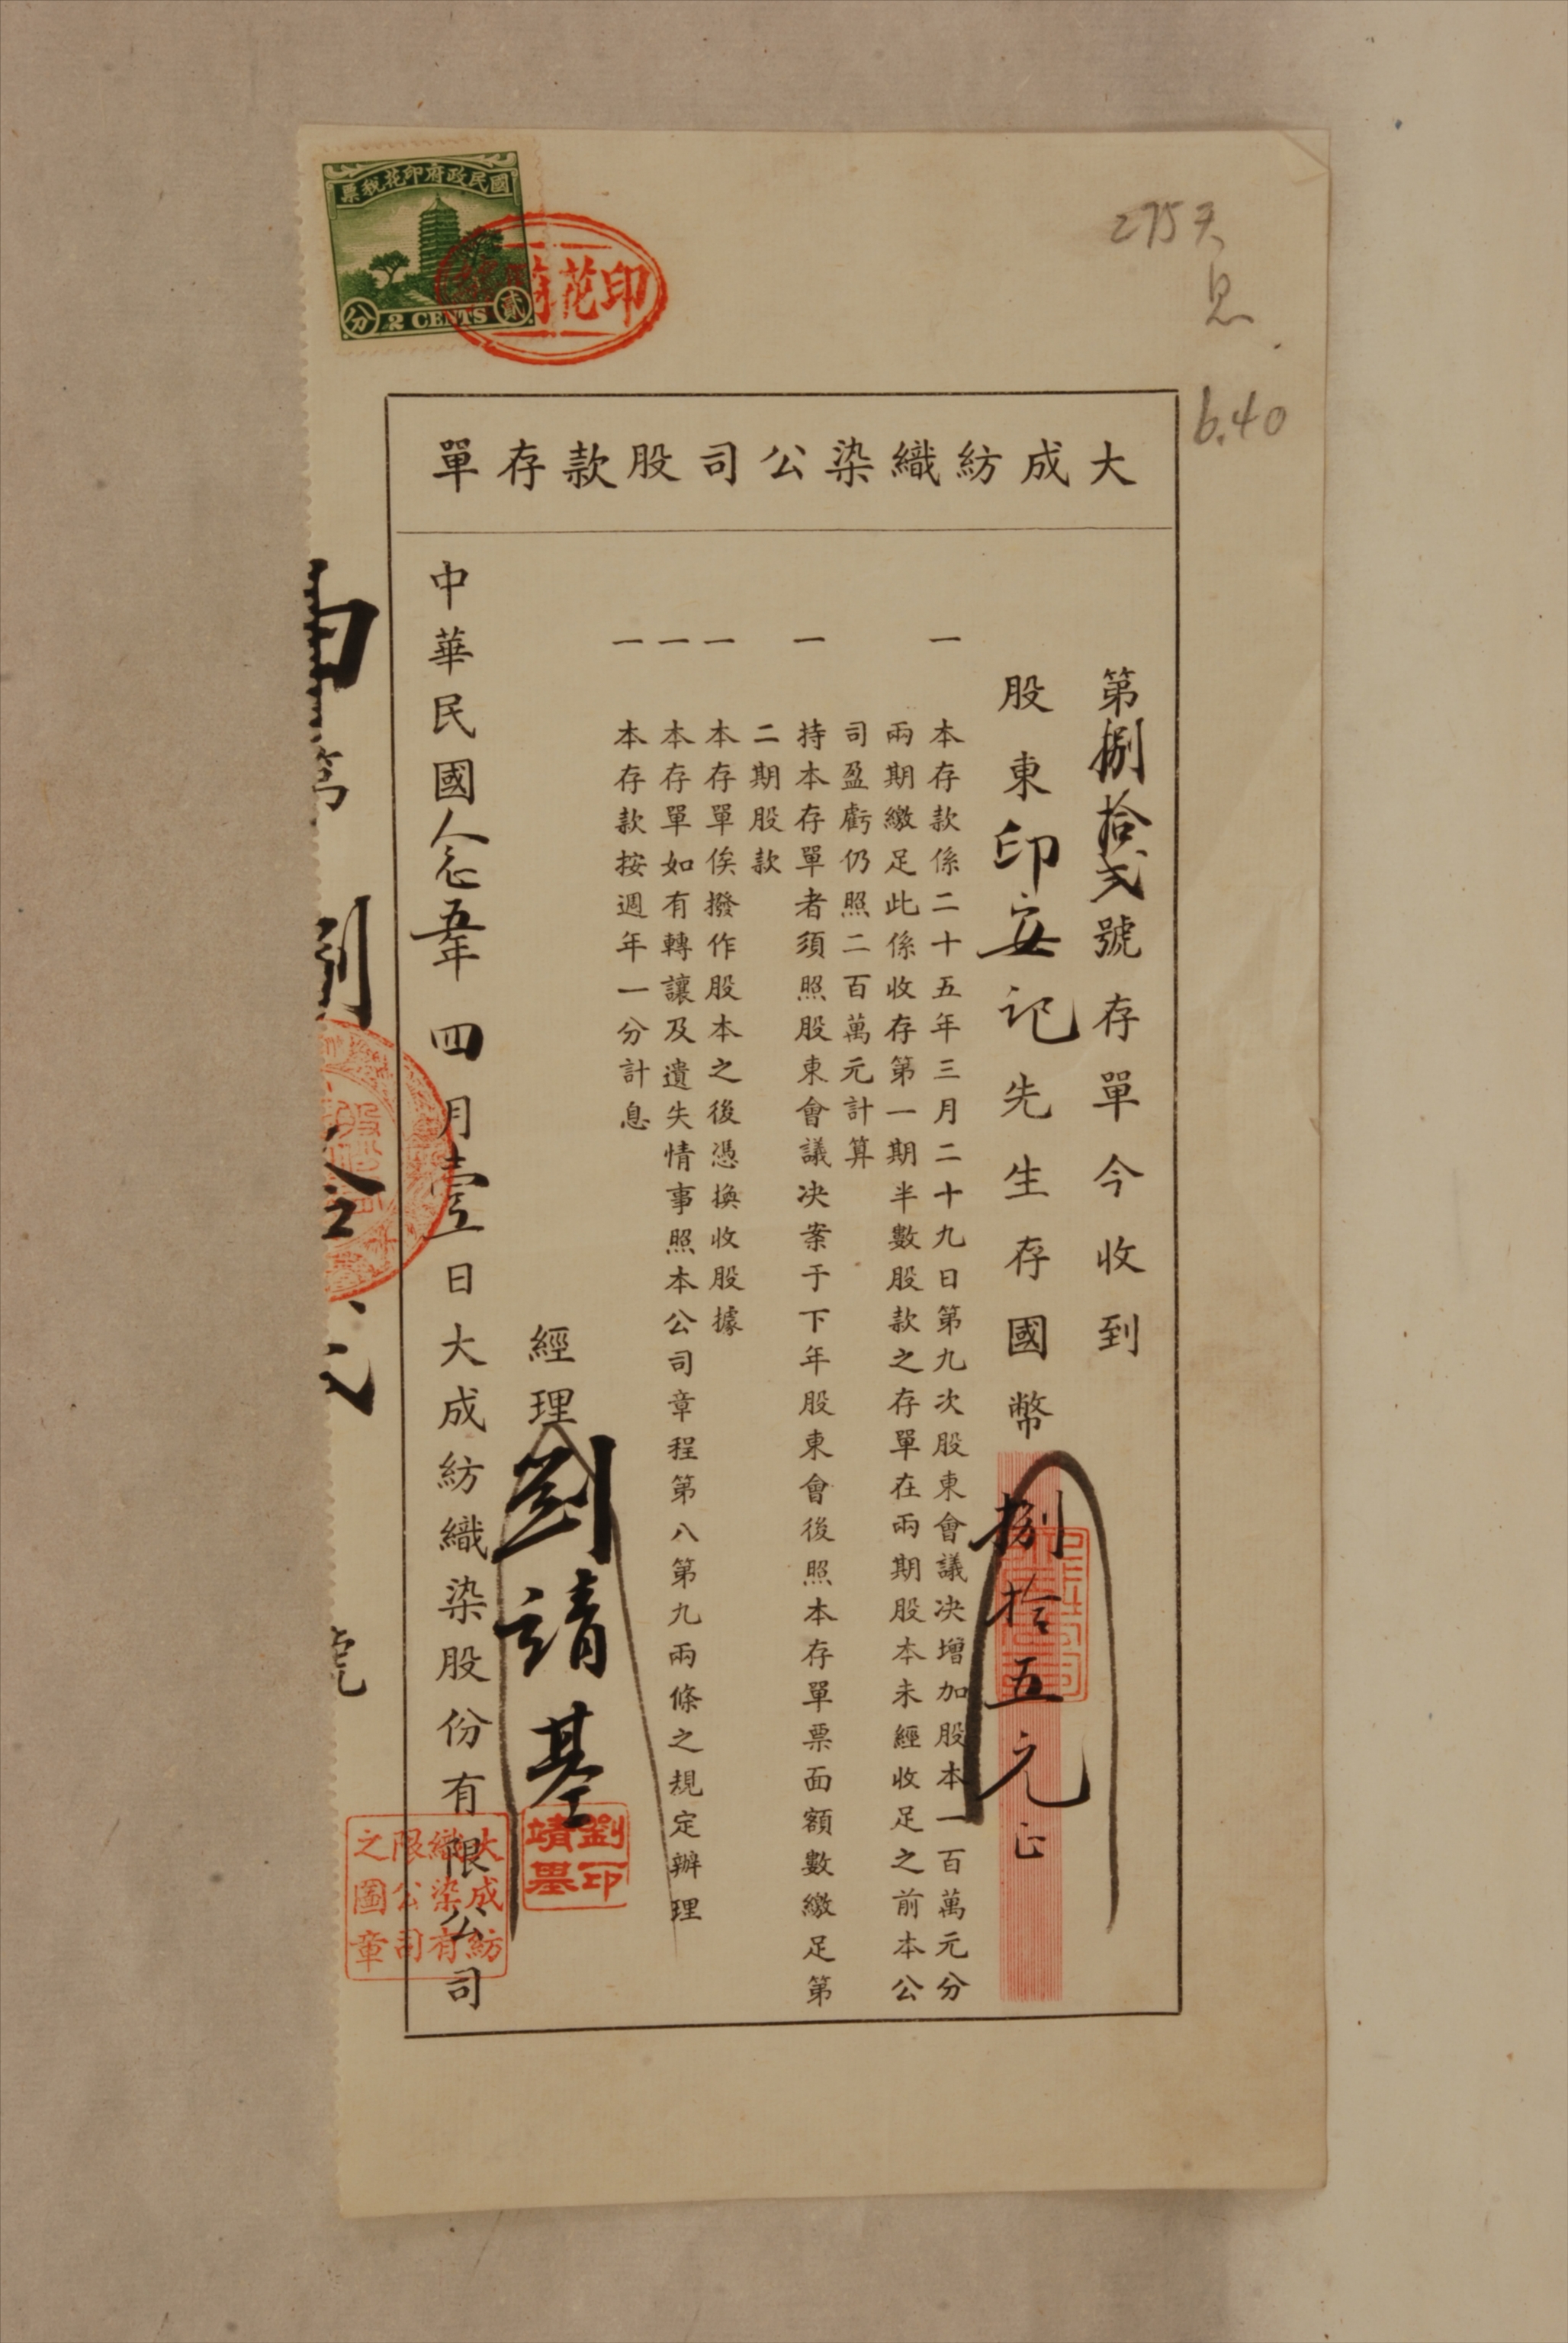 國民政府印花稅票
分 2 CENTS 貳
印花
275天
息
6.40
大成紡織染公司股款存單
第捌拾弐號存單今收到
股東印安記先生存國幣捌拾五元正
一 本存款係二十五年三月二十九日第九次股東會議決增加股本一百萬元分
兩期繳足此係收存第一期半數股款之存單在兩期股本未經收足之前本公
司盈虧仍照二百萬元計算
一 持本存單者須照股東會議決案于下年股東會後照本存單票面額數繳足第
二期股款
一 本存單俟撥作股本之後憑換收股據
一 本存單如有轉讓及遺失情事照本公司章程第八第九兩條之規定辦理
一 本存款按週年一分計息
經理劉靖基
劉印靖基
中華民國念五年四月壹日大成紡織染股份有限公司
大成紡織染有限公司之圖章